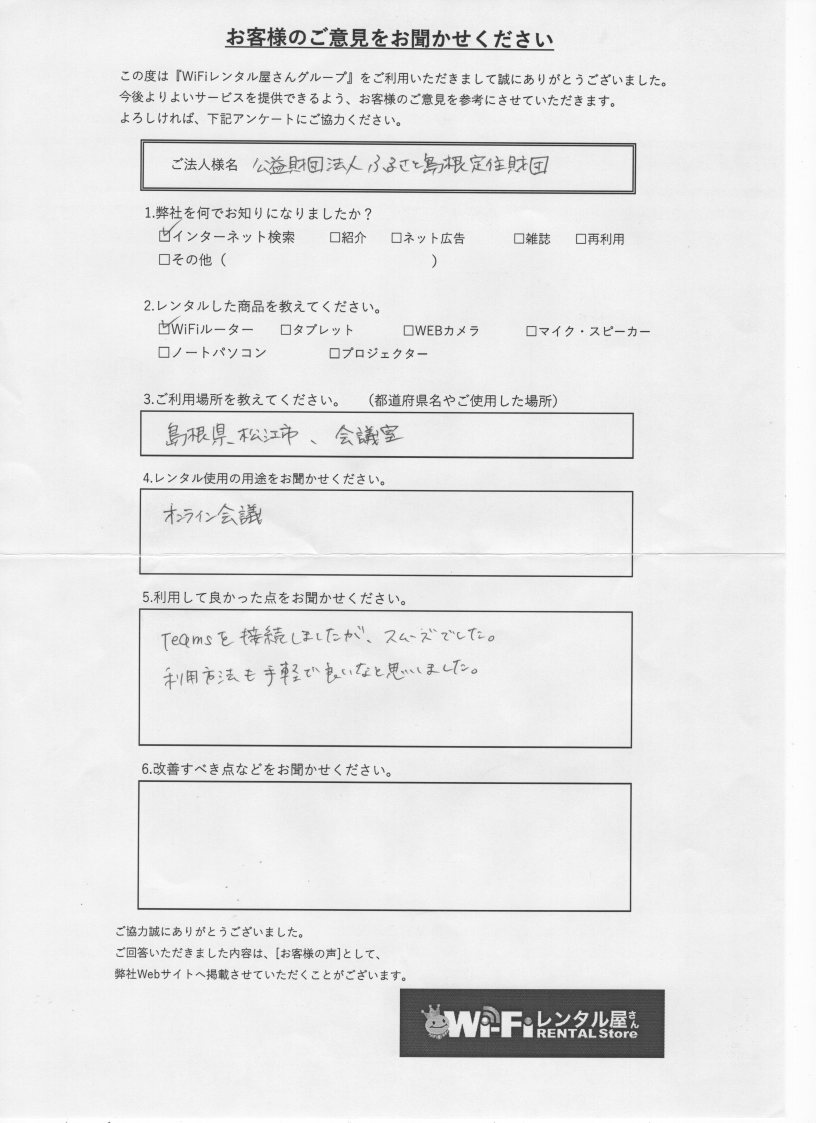 お客様のご意見をお聞かせください
この度は『WiFiレンタル屋さんグループ』をご利用いただきまして誠にありがとうございました。
今後よりよいサービスを提供できるよう、お客様のご意見を参考にさせていただきます。
よろしければ、下記アンケートにご協力ください。
ご法人様名 公益財団法人ふるさと島根定住財団
1.弊社を何でお知りになりましたか？
☑インターネット検索 □紹介 □ネット広告 □雑誌 □再利用
□その他（ ）
2.レンタルした商品を教えてください。
☑WiFiルーター □タブレット □WEBカメラ □マイク・スピーカー
□ノートパソコン □プロジェクター
3.ご利用場所を教えてください。 （都道府県名やご使用した場所）
島根県松江市、会議室
4.レンタル使用の用途をお聞かせください。
オンライン会議
5.利用して良かった点をお聞かせください。
Teamsを接続しましたが、スムーズでした。
利用方法も手軽で良いなと思いました。
6.改善すべき点などをお聞かせください。
ご協力誠にありがとうございました。
ご回答いただきました内容は、[お客様の声]として、
弊社Webサイトへ掲載させていただくことがございます。
Wi-Fiレンタル屋さん
RENTAL Store